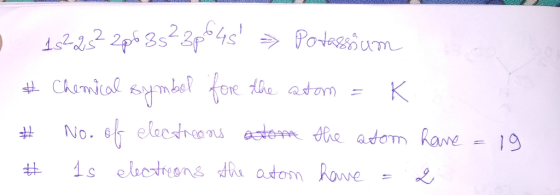 1s² 2s² 2p⁶ 3s² 3p⁶ 4s¹ ⇒ Potassium
# Chemical symbol fore the atom = K
# No. of electreons atom the atom have = 19
# 1s electreons the atom have = 2